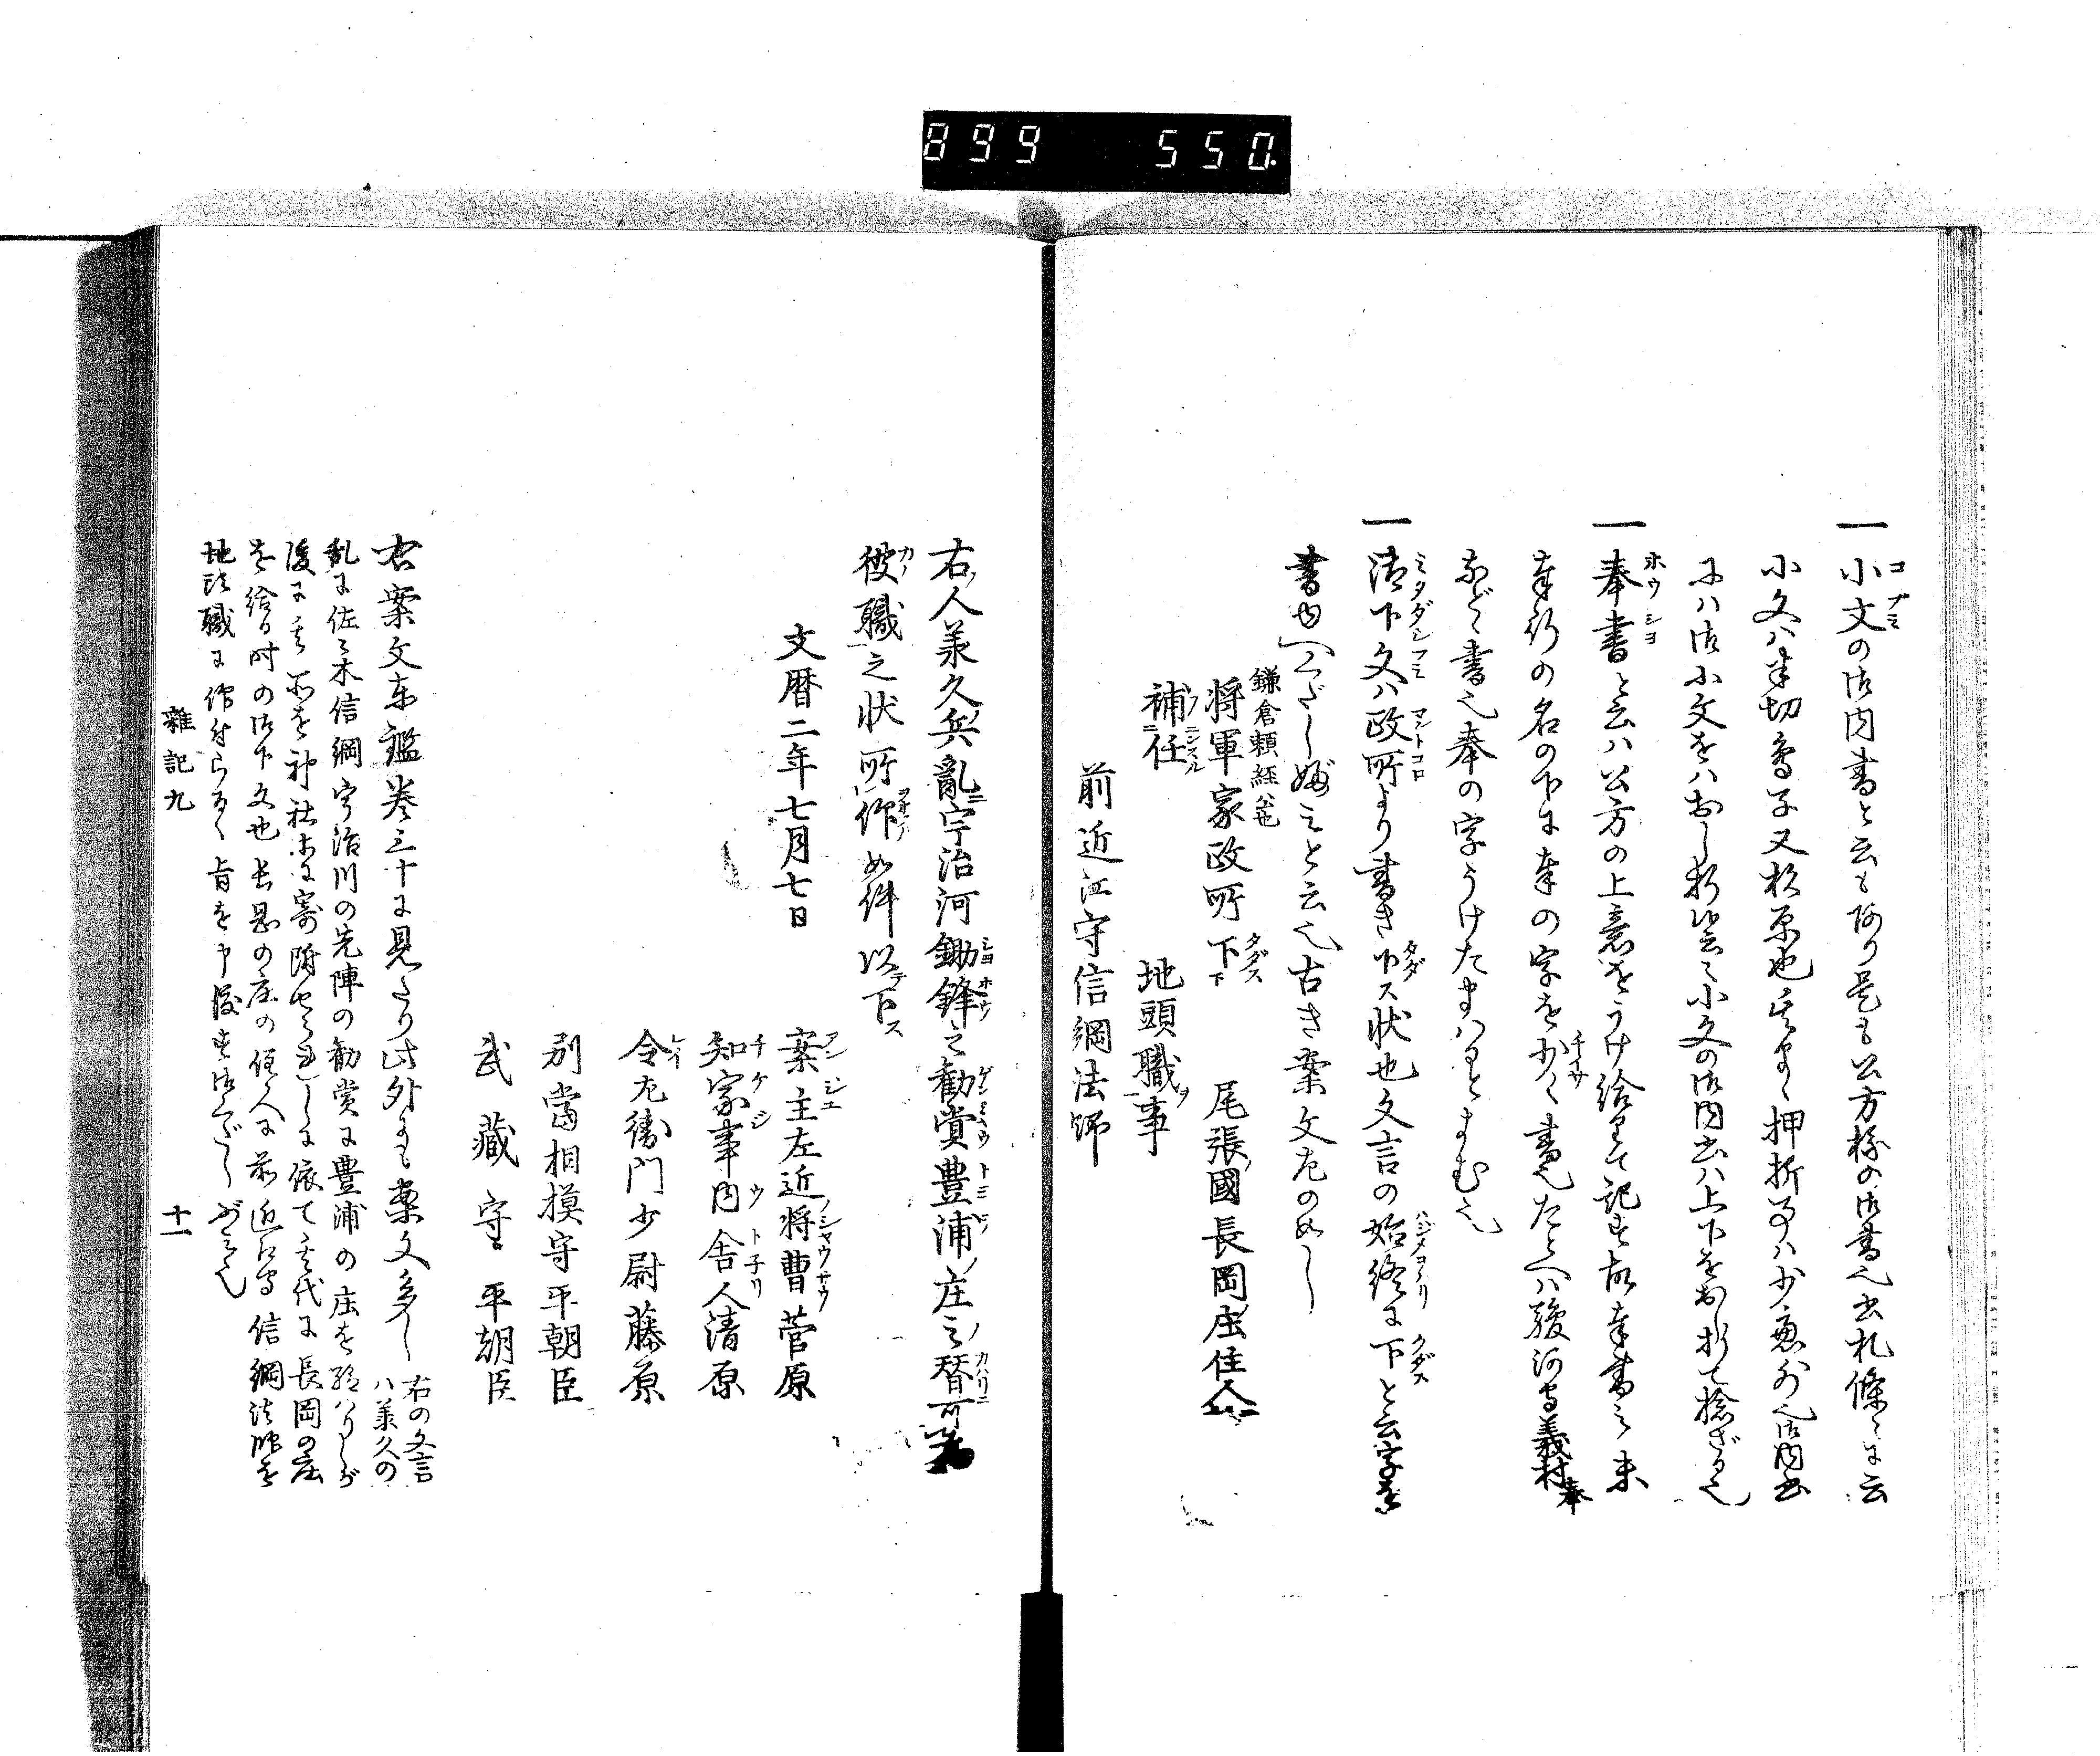 899 550.
一 小文の御内書と云も有り是も公方様の御書也書札條々に云
小文ハ半切鳥子又杉原也
にハ御小文をハおし折候云々小文の御内書ハ上下をおし折て捻ざる也
一 奉書と云ハ公方の上意をうけ給りて記す故奉書の末に
奉行の名の下に奉の字を少く書也たとへハ駿河守義村奉
などゝ書也奉の字うけたまハるとよむ也
一 御下文ハ政所より書き下ス状也文言の始終に下と云字を
書也くだし文と云也古き案文左の如し
鎌倉頼経公也
将軍家政所下 尾張國長岡庄住人
補任 地頭職事
前近江守信綱法師
右人承久兵亂宇治河鋤鋒之勸賞豊浦庄之替可為
彼職之状所仰如件以下
文暦二年七月七日
案主左近将曹菅原
知家事内舎人清原
令左衛門少尉藤原
別當相模守平朝臣
武藏守平朝臣
右案文東鑑巻三十に見えたり此外にも案文多し 右の文言
ハ承久の
乱に佐々木信綱宇治川の先陣の勧賞に豊浦の庄を給ハりしが
後に其所を神社に寄附せられしに依て其代に長岡の庄
を給る時の御下文也長岡の庄の住人に前近江守信綱法師を
地頭職に仰付らるゝ旨を申渡す御くだし文也
雜記九 十一